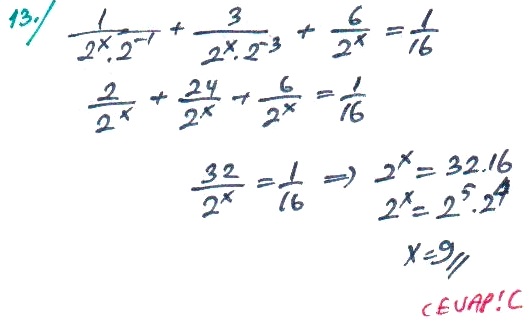 13./ 1/(2^x . 2^-1) + 3/(2^x . 2^-3) + 6/2^x = 1/16
2/2^x + 24/2^x + 6/2^x = 1/16
32/2^x = 1/16 => 2^x = 32.16
2^x = 2^5 . 2^4
x = 9//
CEVAP! C